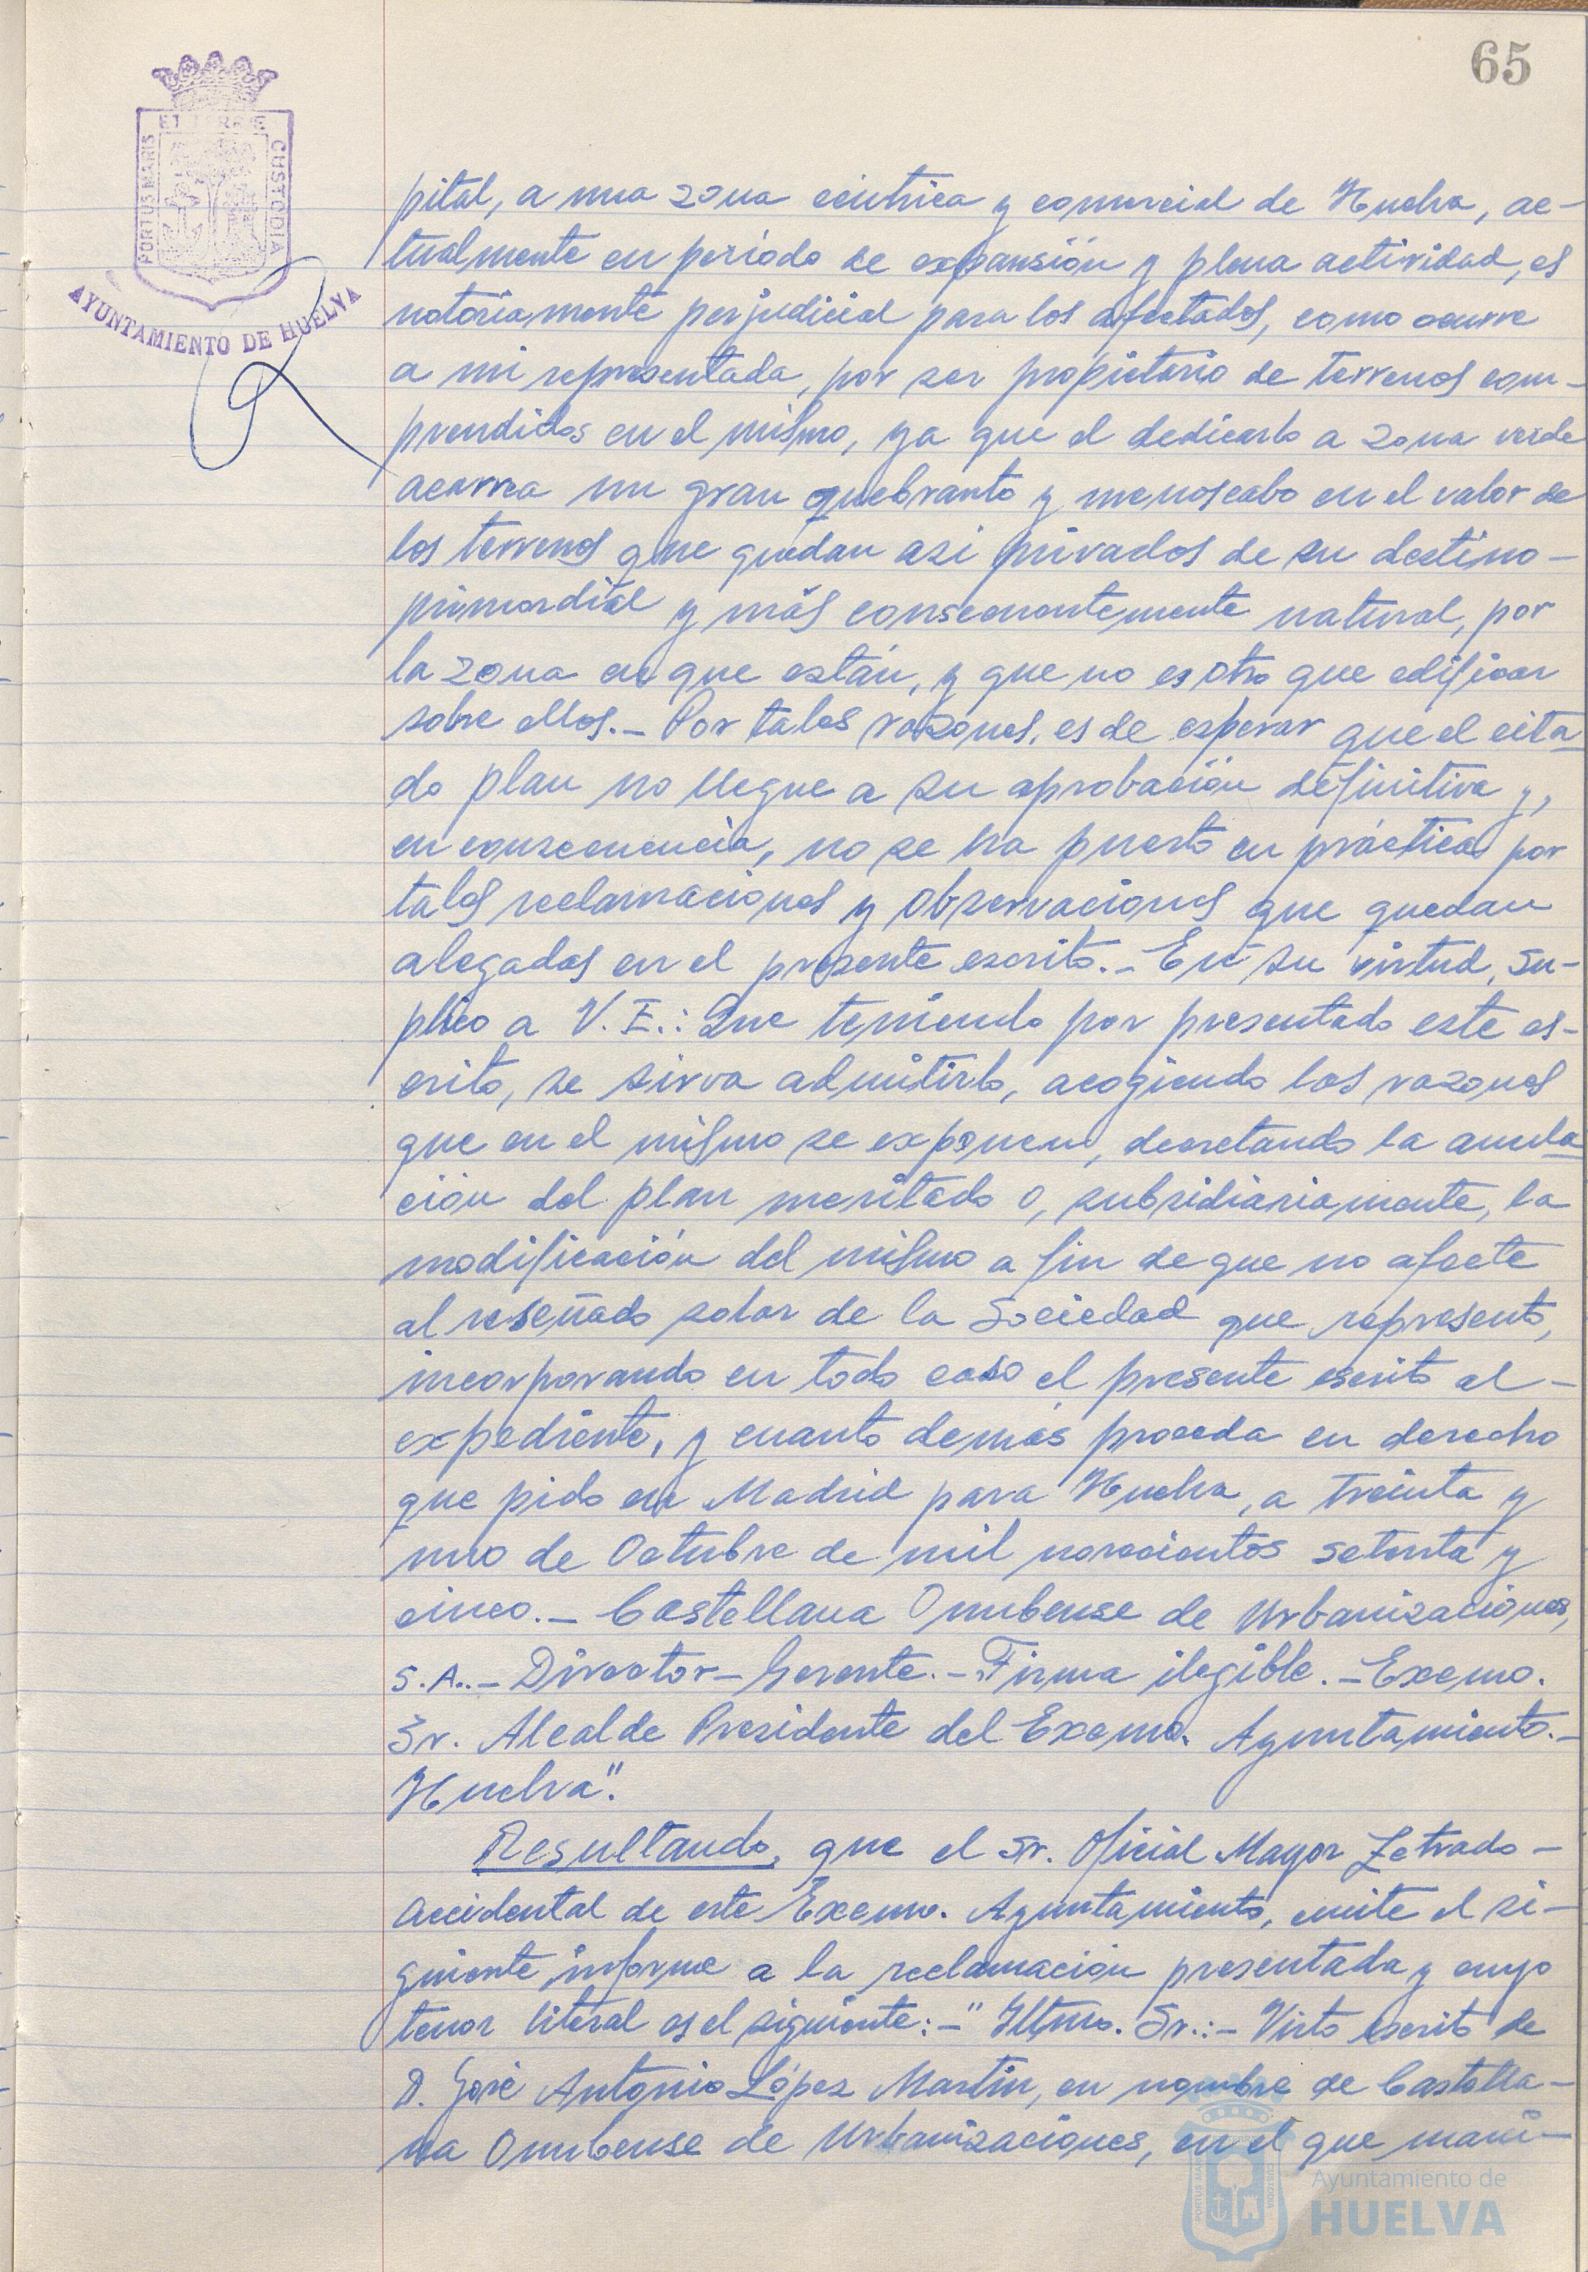 65
ET TERRE
PORTUS MARIS
CUSTODIA
AYUNTAMIENTO DE HUELVA
pital, a una zona céntrica y comercial de Huelva, ac-
tualmente en período de expansión y plena actividad, es
notoriamente perjudicial para los afectados, como ocurre
a mi representada, por ser propietario de terrenos com-
prendidos en el mismo, ya que el dedicarlo a zona verde
acarrea un gran quebranto y menoscabo en el valor de
los terrenos que quedan asi privados de su destino-
primordial y más consecuentemente natural, por
la zona en que están, y que no es otro que edificar
sobre ellos.- Por tales razones, es de esperar que el cita-
do plan no llegue a su aprobación definitiva y,
en consecuencia, no se ha puesto en práctica por
tales reclamaciones y observaciones que quedan
alegadas en el presente escrito.- En su virtud, su-
plico a V. E.: Que teniendo por presentado este es-
crito, se sirva admitirlo, acogiendo las razones
que en el mismo se exponen, decretando la anula-
ción del plan meritado o, subsidiariamente, la
modificación del mismo a fin de que no afecte
al reseñado solar de la Sociedad que represento,
incorporando en todo caso el presente escrito al-
expediente, y cuanto demás proceda en derecho
que pido en Madrid para Huelva, a treinta y
uno de Octubre de mil novecientos setenta y
cinco.- Castellana Onubense de Urbanizaciones,
S.A..- Director-Gerente.- Firma ilegible.- Excmo.
Sr. Alcalde Presidente del Excmo. Ayuntamiento.-
Huelva".
Resultando, que el Sr. Oficial Mayor Letrado-
accidental de este Excmo. Ayuntamiento, emite el si-
guiente informe a la reclamación presentada y cuyo
tenor literal es el siguiente:-" Iltmo. Sr.:- Visto escrito de
D. José Antonio López Martín, en nombre de Castella-
na Onubense de Urbanizaciones, en el que mani-
Ayuntamiento de
HUELVA